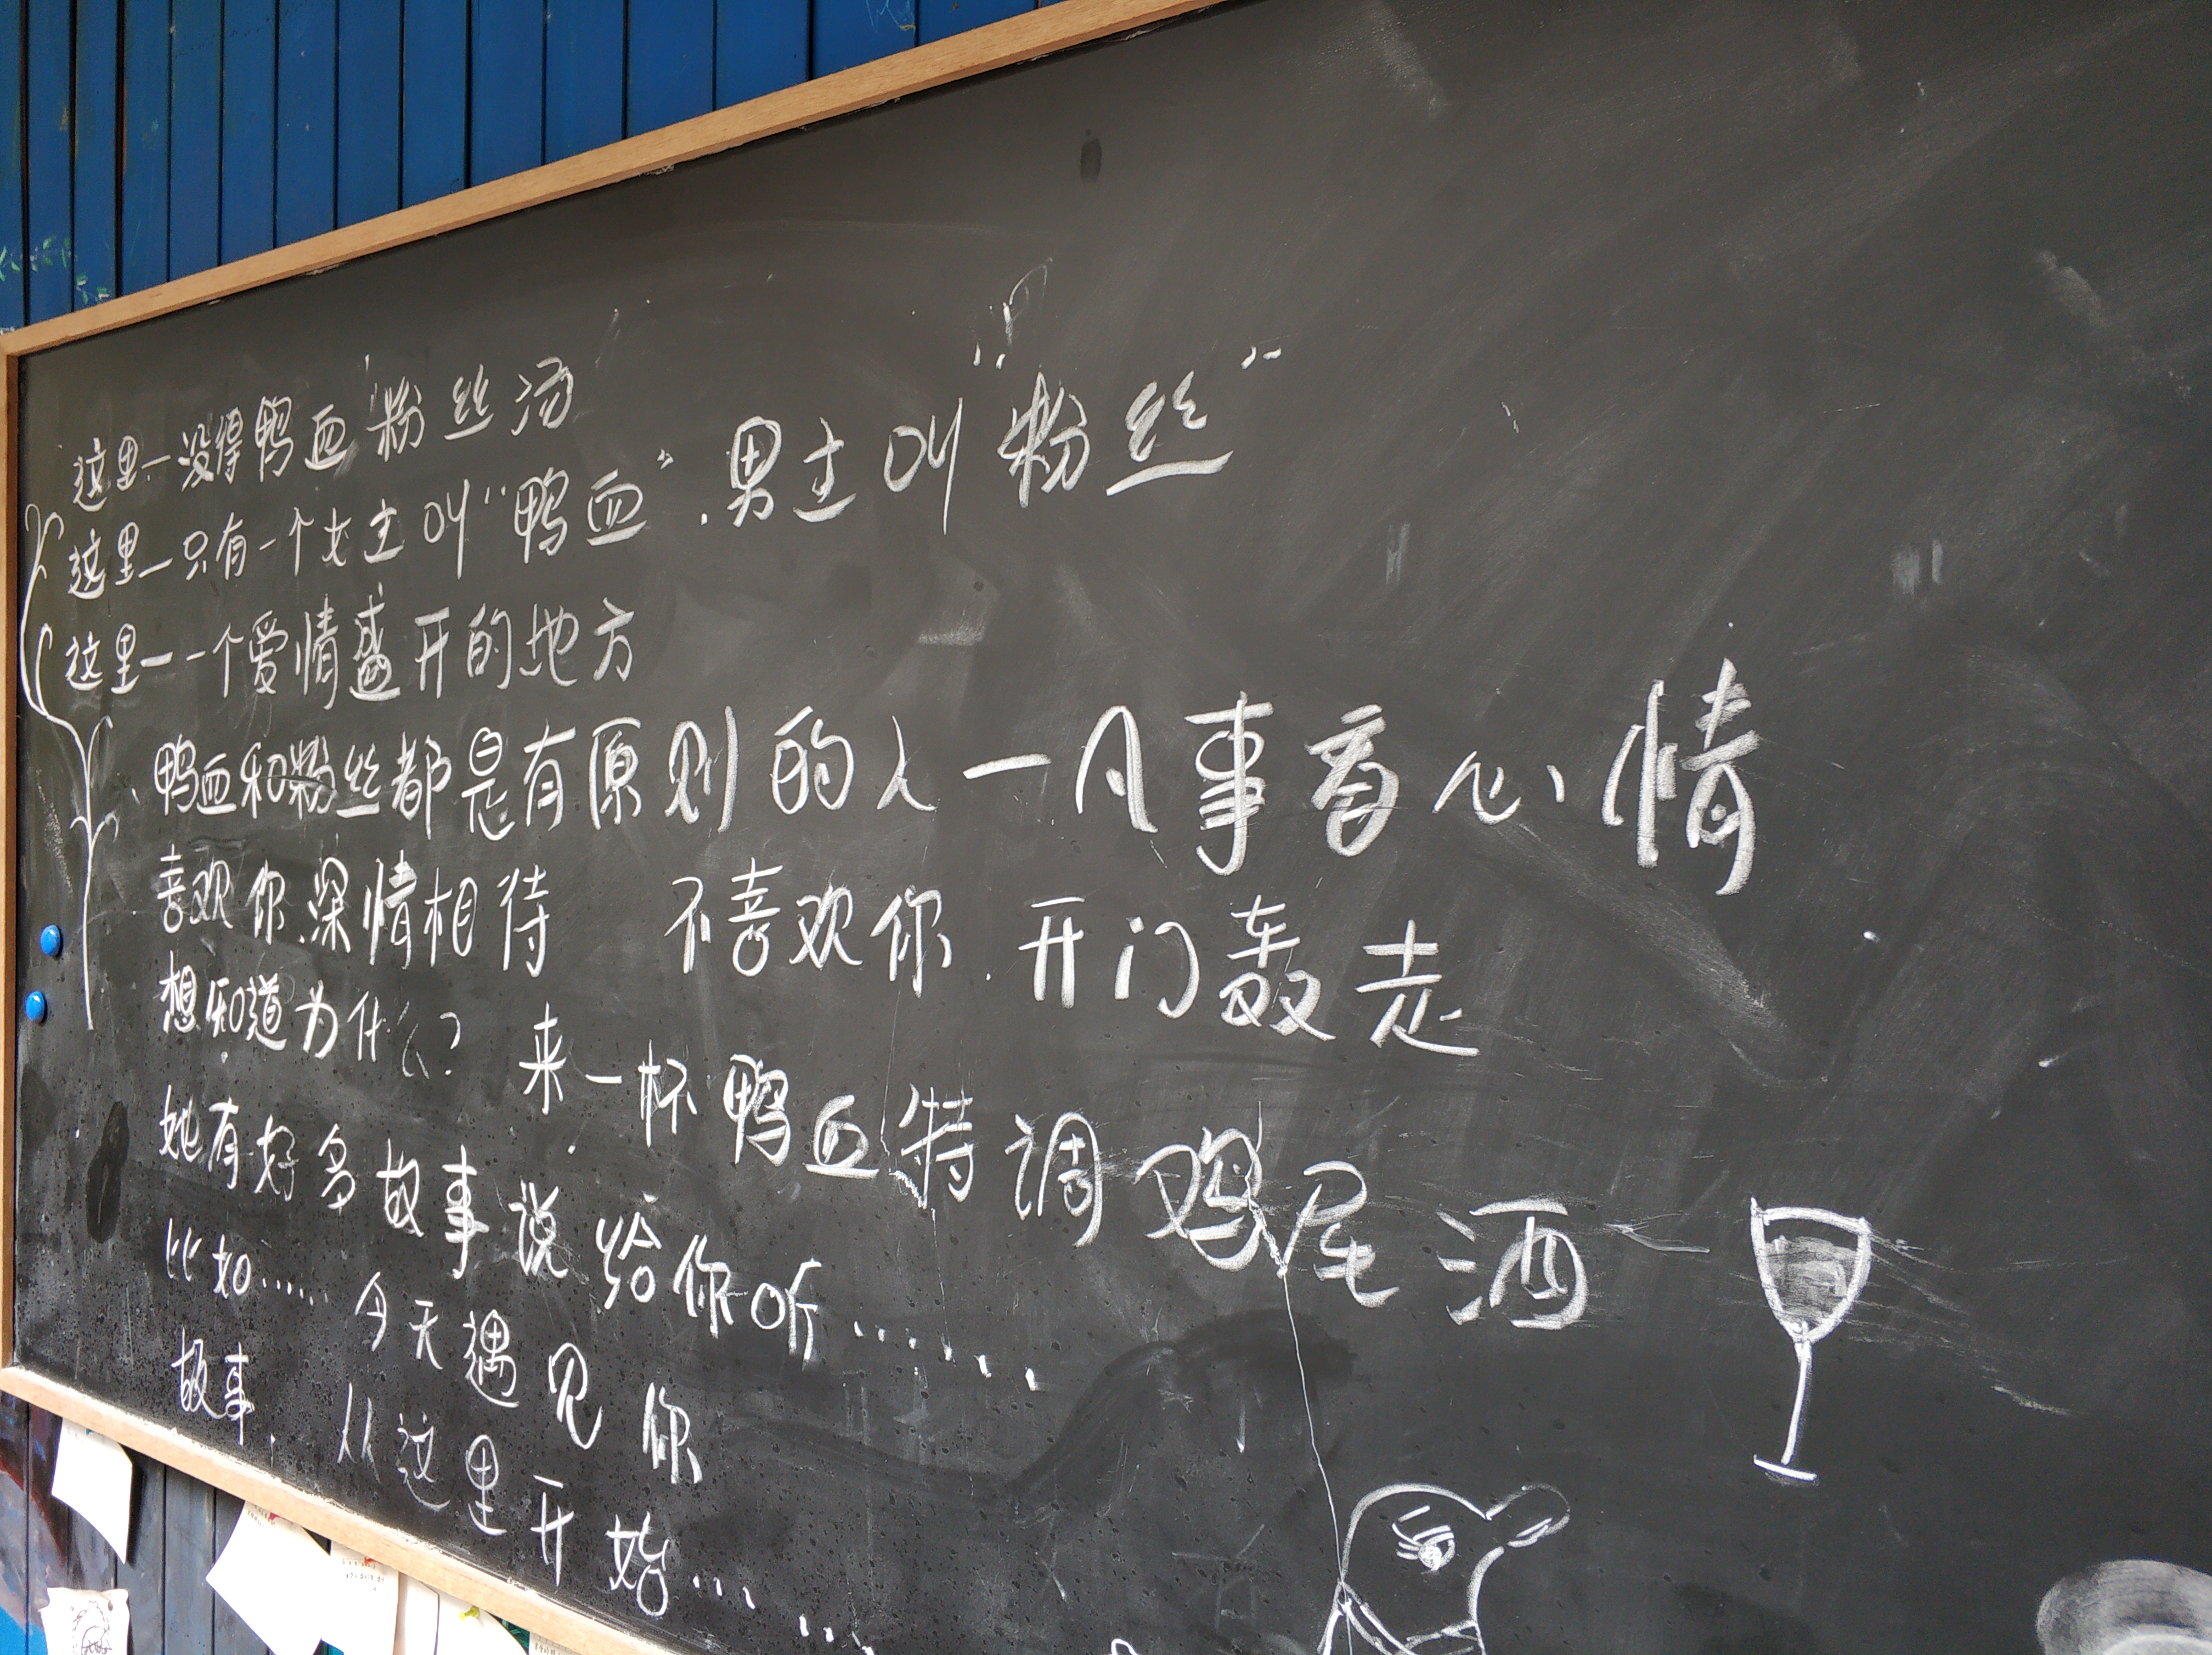 这里一没得鸭血粉丝汤
这里一只有一个女主叫“鸭血”.男主叫“粉丝”
这里一一个爱情盛开的地方
鸭血和粉丝都是有原则的人一凡事看心情
喜欢你.深情相待 不喜欢你.开门轰走
想知道为什么? 来一杯鸭血特调鸡尾酒
她有好多故事说给你听......
比如...... 今天遇见你
故事. 从这里开始......